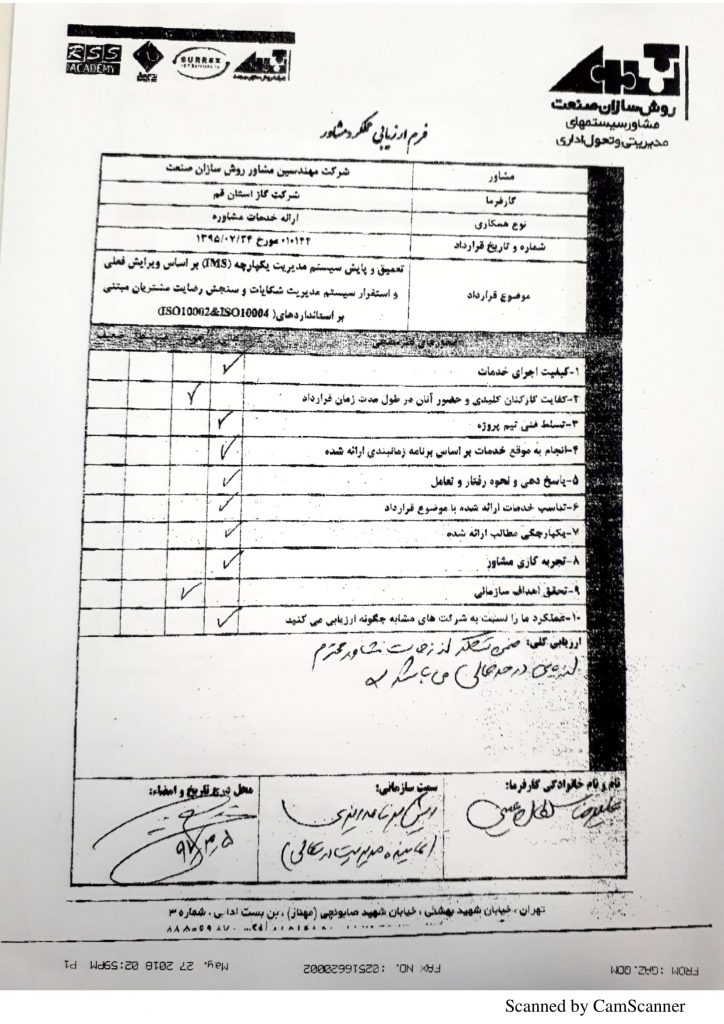 RSS
ACADEMY
روش‌سازان صنعت
مشاور سیستمهای
مدیریتی و تحول اداری
فرم ارزیابی عملکرد مشاور
مشاور
شرکت مهندسین مشاور روش سازان صنعت
کارفرما
شرکت گاز استان قم
نوع همکاری
ارائه خدمات مشاوره
شماره و تاریخ قرارداد
۰۱۰۱۴۴ مورخ ۱۳۹۵/۰۷/۲۴
موضوع قرارداد
تعمیق و پایش سیستم مدیریت یکپارچه (IMS) بر اساس ویرایش فعلی
و استقرار سیستم مدیریت شکایات و سنجش رضایت مشتریان مبتنی
بر استانداردهای (ISO10002&ISO10004)
۱-کیفیت اجرای خدمات
۲-کفایت کارکنان کلیدی و حضور آنان در طول مدت زمان قرارداد
۳-تسلط فنی تیم پروژه
۴-انجام به موقع خدمات بر اساس برنامه زمانبندی ارائه شده
۵-پاسخ دهی و نحوه رفتار و تعامل
۶-تناسب خدمات ارائه شده با موضوع قرارداد
۷-یکپارچگی مطالب ارائه شده
۸-تجربه کاری مشاور
۹-تحقق اهداف سازمانی
۱۰-عملکرد ما را نسبت به شرکت های مشابه چگونه ارزیابی می کنید
ارزیابی کلی: ضمن تشکر از زحمات مشاور محترم
ارزیابی در حد عالی می باشد
نام و نام خانوادگی کارفرما:
علیرضا
سمت سازمانی:
رئیس برنامه ریزی
(نماینده مدیریت در تعالی)
محل درج تاریخ و امضاء:
تهران ، خیابان شهید بهشتی ، خیابان شهید صابونچی (مهناز) ، بن بست ادایی ، شماره ۳
FROM :GAZ.QOM
FAX NO. :02516620002
May. 27 2018 02:59PM P1
Scanned by CamScanner